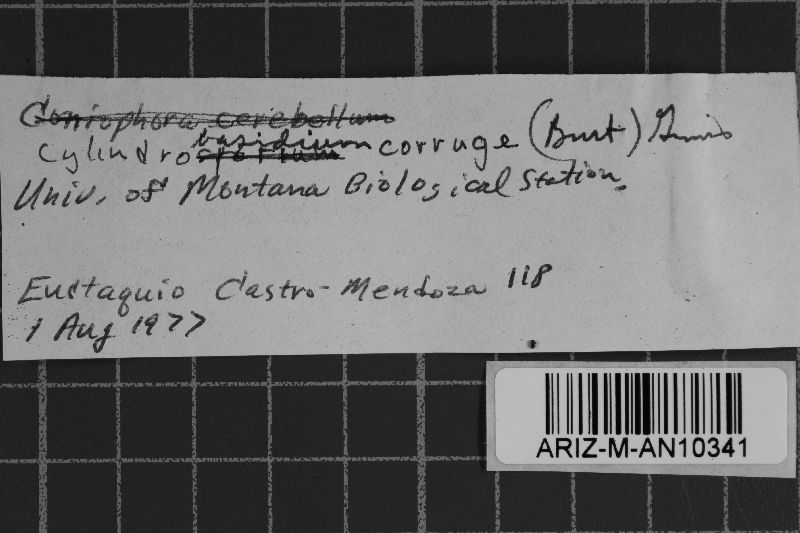 Coniophora cerebellum
Cylindrosporium basidium corruge (Burt)
Univ. of Montana Biological Station.
Eustaquio Castro-Mendoza 118
1 Aug 1977
ARIZ-M-AN10341